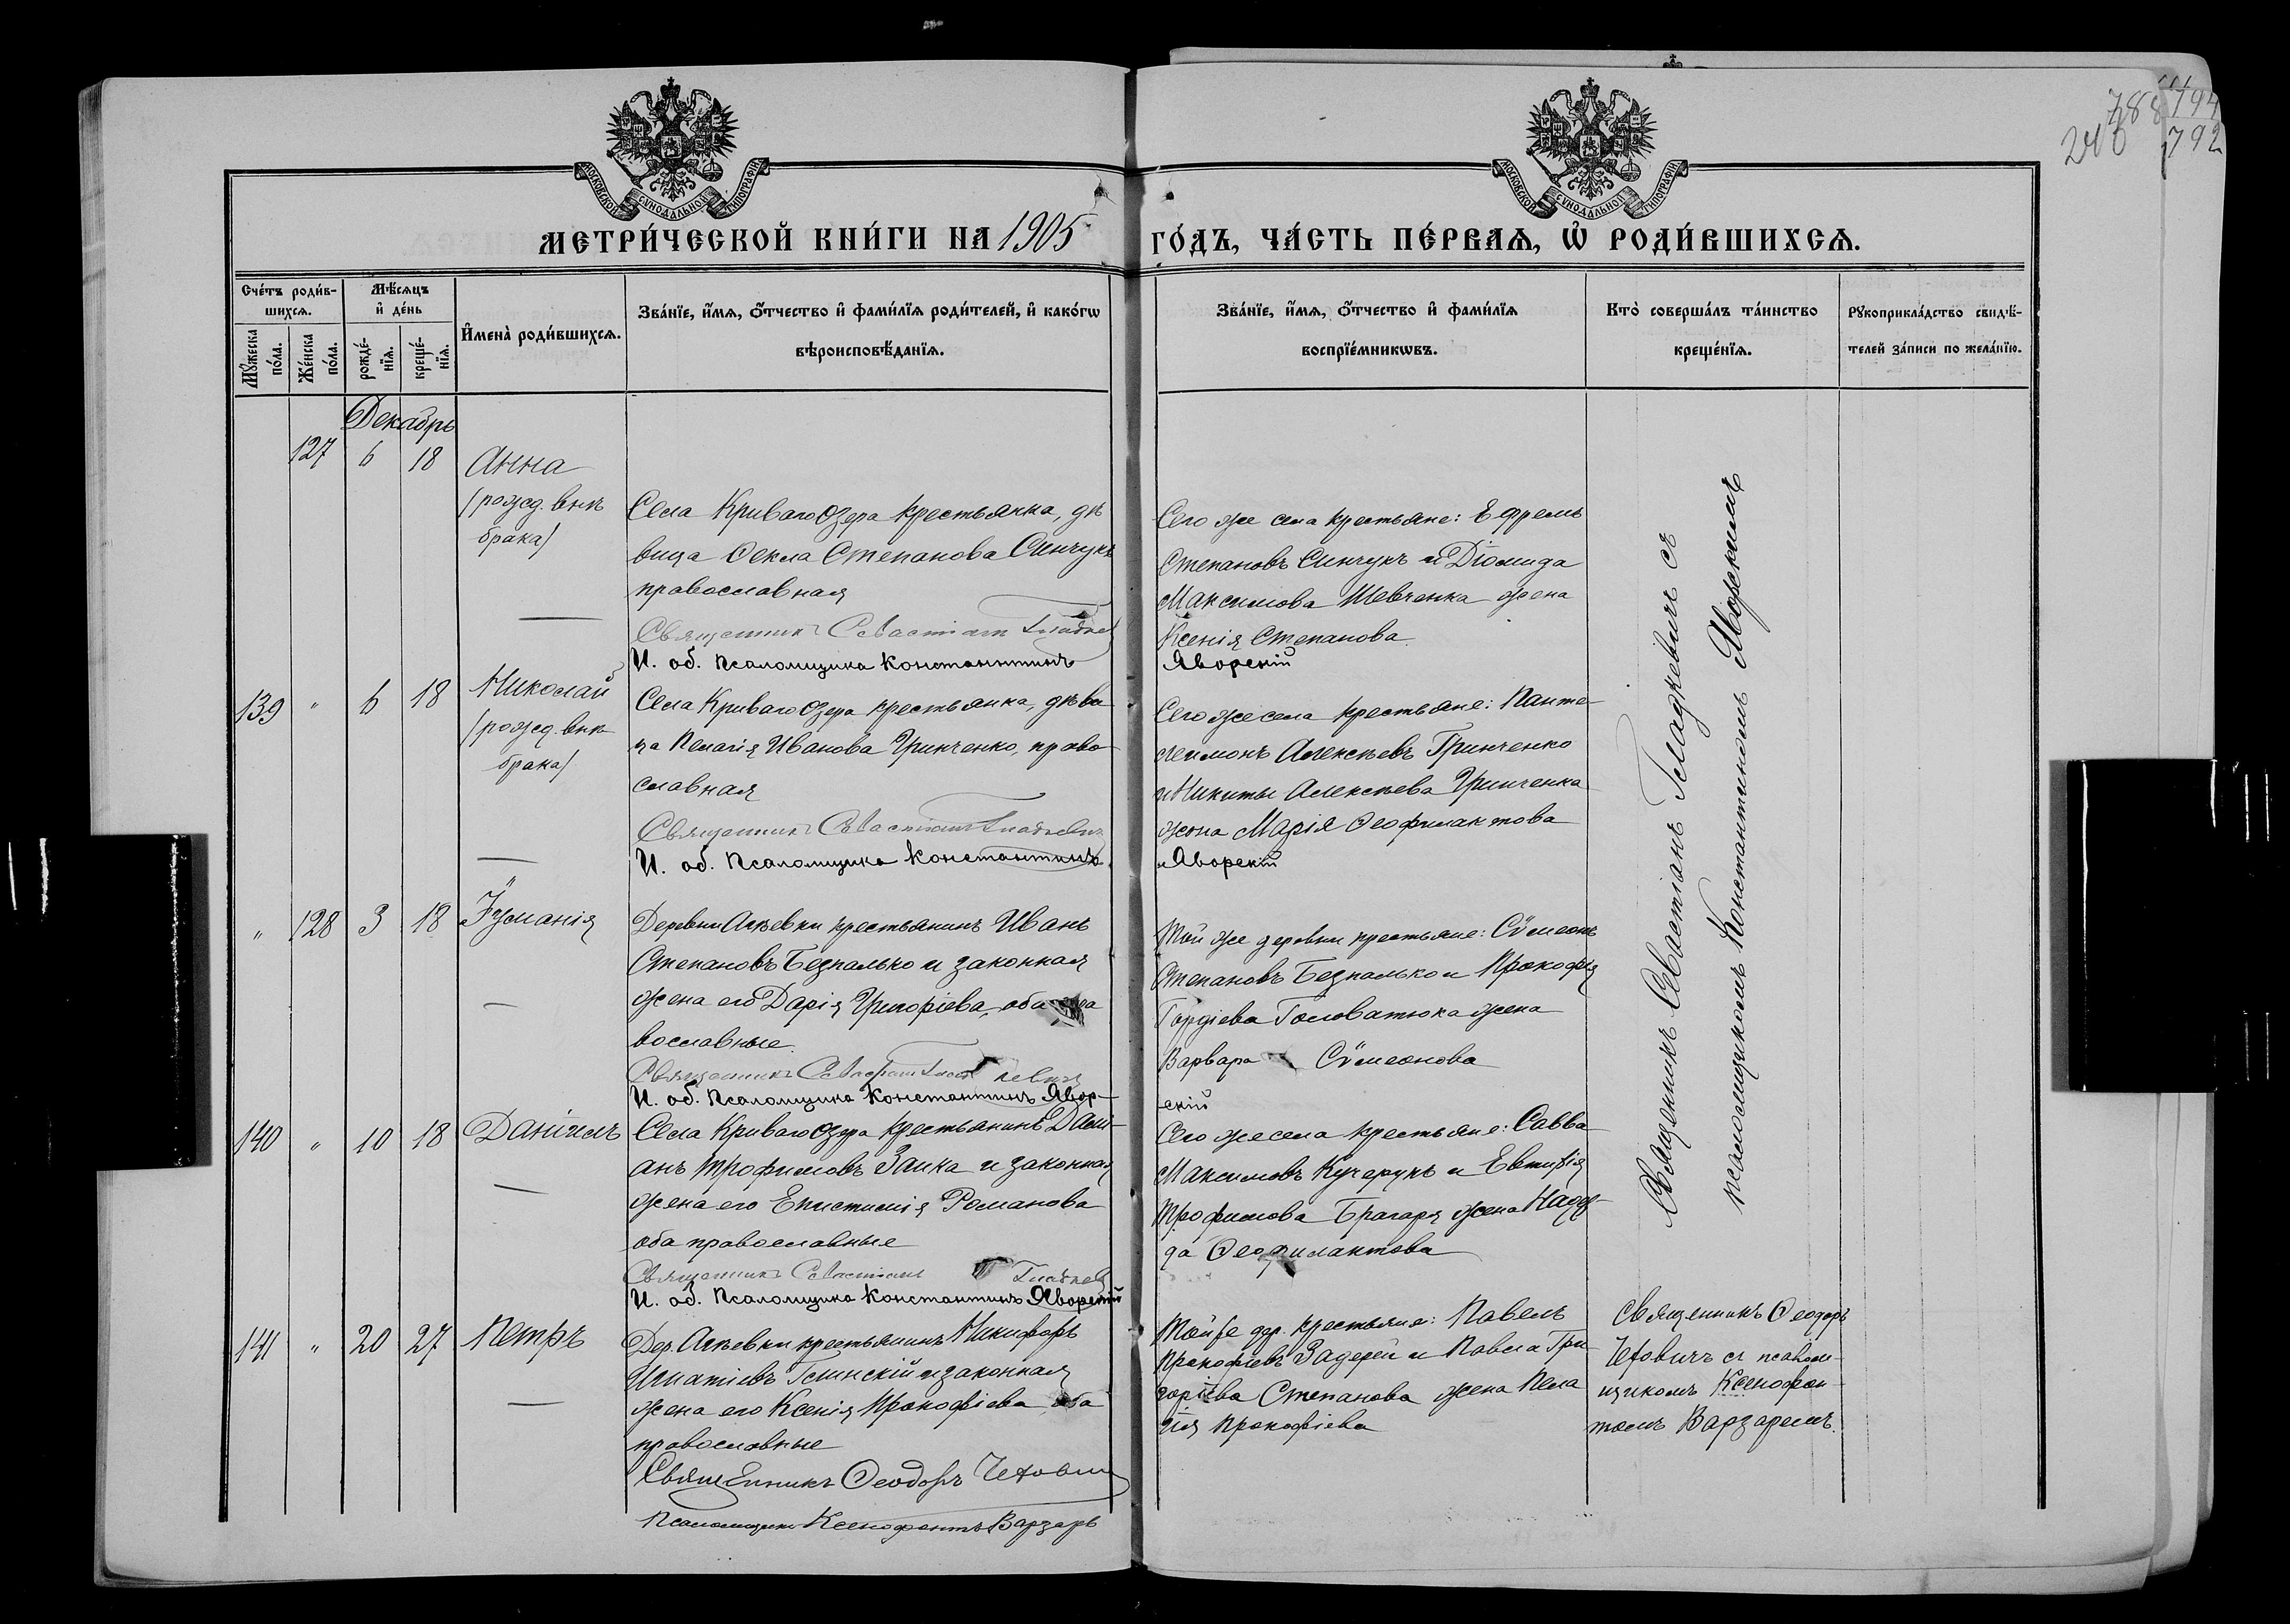 788 794
240 792
МОСКОВСКОЙ СѴНОДАЛЬНОЙ ТИПОГРАФІИ
МОСКОВСКОЙ СѴНОДАЛЬНОЙ ТИПОГРАФІИ
МЕТРИ́ЧЕСКОЙ КНИ́ГИ НА 1905 ГО́ДЪ, ЧА́СТЬ ПЕ́РВАѦ, Ѡ҆ РОДИ́ВШИХСѦ.
Сче́тъ роди́в-
шихсѧ.
Мꙋ́жеска по́ла.
Же́нска по́ла.
Мѣ́сѧцъ и҆ де́нь
рожде́-
нїѧ.
креще́-
нїѧ.
И҆мена̀ роди́вшихсѧ.
Зва́нїе, и҆́мѧ, ѻ҆́тчество и҆ фами́лїѧ роди́телей, и҆ како́гѡ
вѣроисповѣ́данїѧ.
Зва́нїе, и҆́мѧ, ѻ҆́тчество и҆ фами́лїѧ
воспрїе́мникѡвъ.
Кто̀ соверша́лъ та́инство
креще́нїѧ.
Рꙋкоприкла́дство свидѣ́-
телей за́писи по жела́нїю.
Декабрь
127 6 18 Анна
/рожд. внѣ
брака/
Села Криваго Озера крестьянка, дѣ
вица Ѳекла Степанова Синчукъ
православная
Священникъ Севастіан Гладкев
И. об. Псаломщика Константинъ
Сего же села крестьяне: Ефремъ
Степановъ Синчукъ и Діомида
Максимова Шевченка жена
Ксенія Степанова.
Яворскій
139 " 6 18 Николай
/рожд. внѣ
брака/
Села Криваго Озера крестьянка, дѣви
ца Пелагія Иванова Гринченко, право
славная
Священникъ Севастіан Гладкевич
И. об. Псаломщика Константинъ
Сего же села крестьяне: Панте-
леимонъ Алексѣевъ Гринченко
и Никиты Алексѣева Гринченка
жена Марія Ѳеофилактова
Яворскій
" 128 3 18 Іуманія
Деревни Агѣевки крестьянинъ Иванъ
Степановъ Безпалько и законная
жена его Дарія Григоріева, оба пра
вославные.
Священникъ Севастіан Гладкевич
И. об. Псаломщика Константинъ Явор-
Той же деревни крестьяне: Сѵмеонъ
Степановъ Безпалько и Прокофія
Гордіева Головатюка жена
Варвара Сѵмеонова
скій
140 " 10 18 Даніилъ
Села Криваго Озера крестьянинъ Дамі-
анъ Трофимовъ Заика и законная
жена его Епистимія Романова
оба православные
Священникъ Севастіан Гладкев
И. об. Псаломщика Константинъ Яворскій
Сего же села крестьяне: Савва
Максимовъ Кучерукъ и Евтифія
Трофимова Брагаря жена Надеж-
да Ѳеофилактова
Священникъ Севастіанъ Гладкевичъ съ
псаломщикомъ Константиномъ Яворскимъ
141 " 20 27 Петръ
Дер. Агѣевки крестьянинъ Никифоръ
Игнатіевъ Глинскій и законная
жена его Ксенія Прокофіева оба
православные
Священникъ Ѳеодоръ Чехович
Псаломщикъ Ксенофонтъ Варзарь
Той же дер. крестьяне: Павелъ
Прокофіевъ Задерей и Павла Гри
горіева Степанова жена Пела
гія Прокофіева
Священникъ Ѳеодоръ
Чеховичъ съ псалом-
щикомъ Ксенофон-
томъ Варзаремъ.